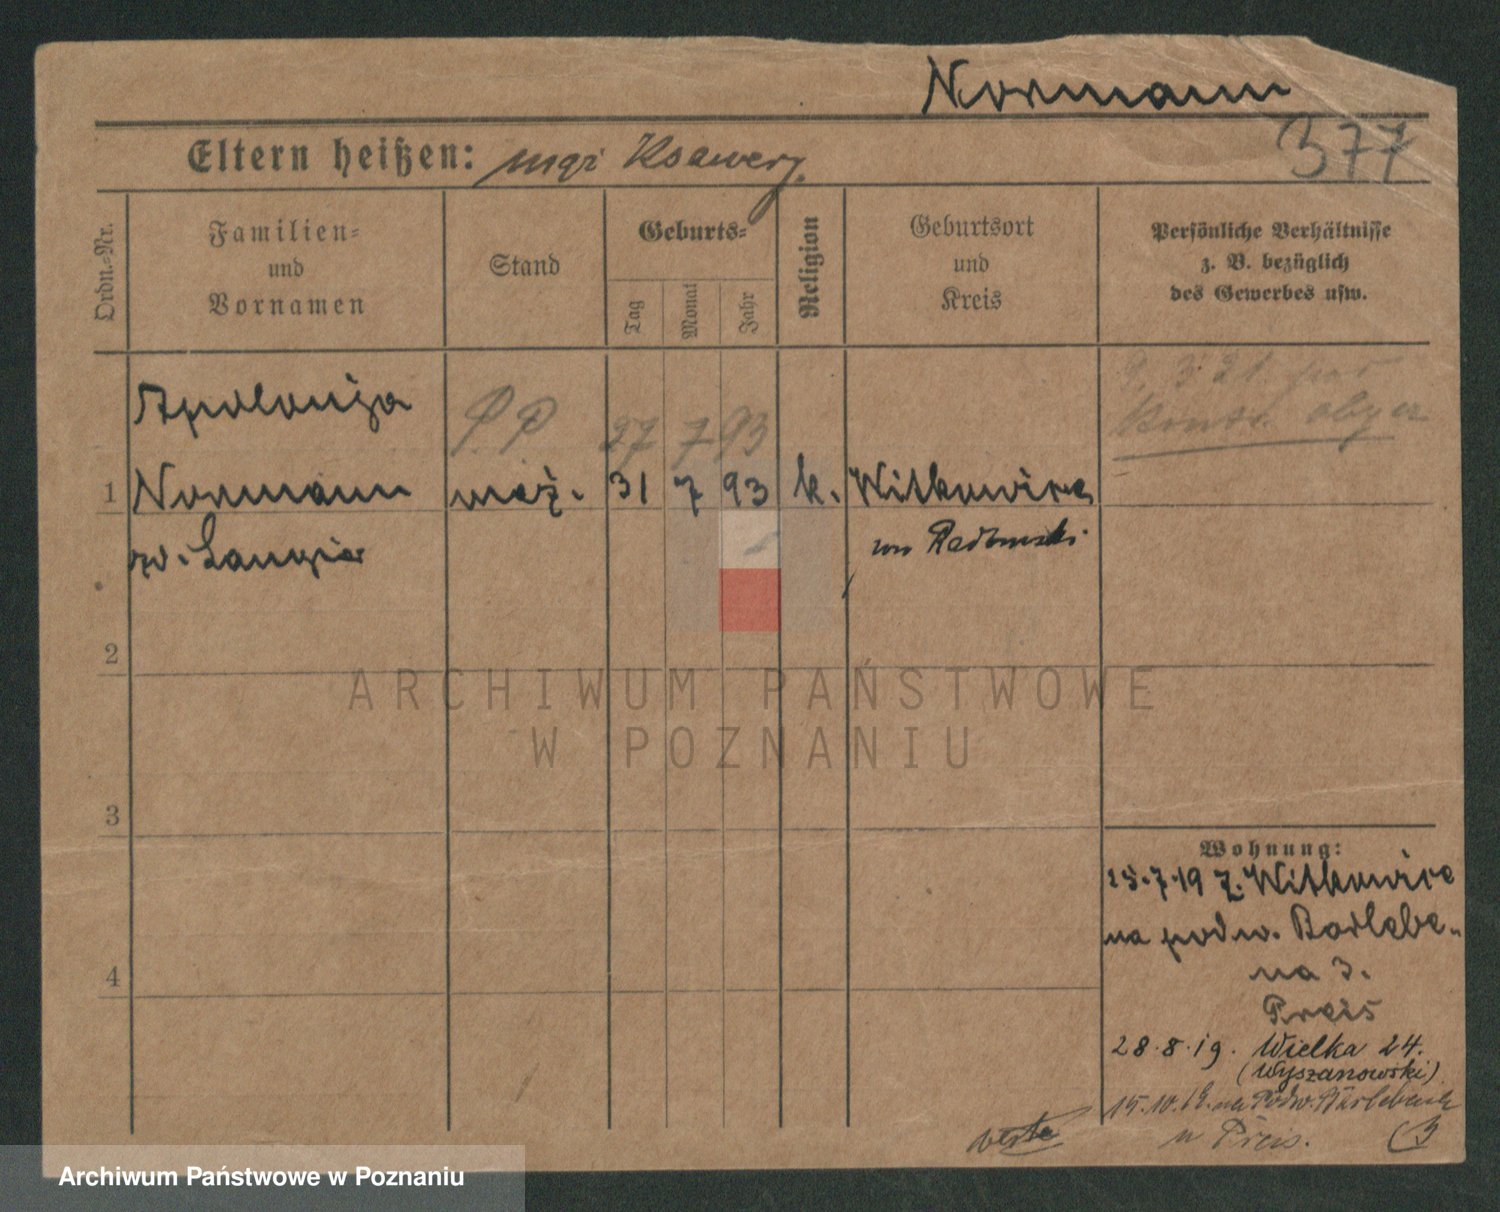 Normann
377
Eltern heißen: mąż Ksawery.
Ordn.-Nr.
Familien-
und
Vornamen
Stand
Geburts-
Tag
Monat
Jahr
Religion
Geburtsort
und
Kreis
Persönliche Verhältnisse
z. B. bezüglich
des Gewerbes usw.
Apolonja
P.P 27 7 93
9. 3 21.
konst. obyw
1 Normann męż. 31 7 93 k. Witkowice
zd. Langie
pow Radomski
2
ARCHIWUM PAŃSTWOWE
W POZNANIU
3
Wohnung:
25.7.19 z. Witkowice
na podw. Barlebe-
na 3.
Preis
28.8.19. Wielka 24.
(Wyszanowski)
15.10.19. na Podw. Bärlebena
u Preis. (3
verte
4
Archiwum Państwowe w Poznaniu